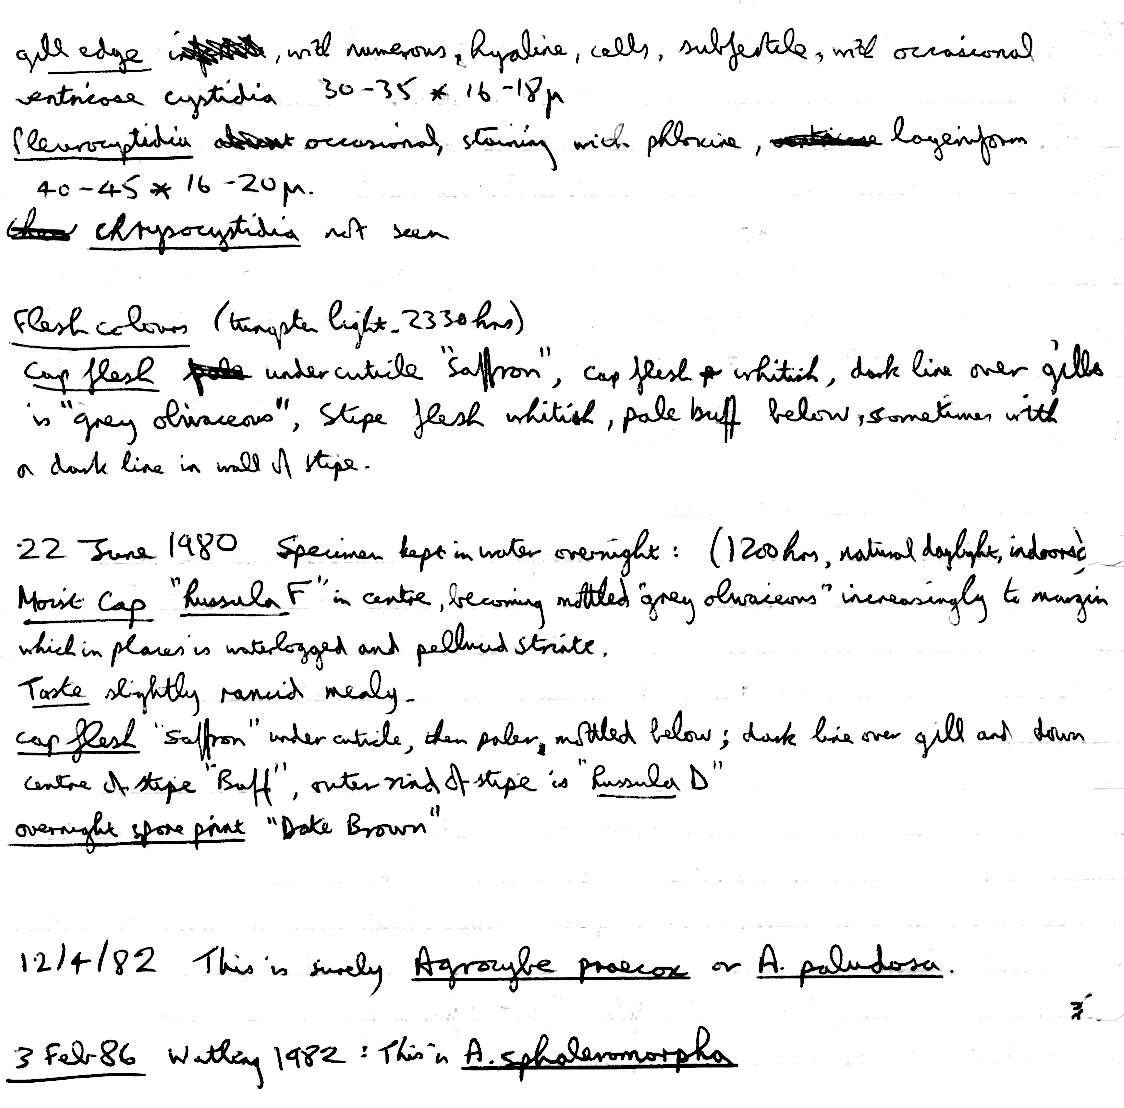 gill edge, with numerous, hyaline, cells, subfertile, with occasional
ventricose cystidia 30-35 * 16-18µ
Pleurocystidia absent occasional, staining with phloxine, ventricose lageniform
40-45 * 16-20µ.
chrysocystidia not seen
Flesh colours (tungsten light - 2330 hrs)
Cap flesh pale under cuticle "Saffron", cap flesh whitish, dark line over gills
is "grey olivaceous", Stipe flesh whitish, pale buff below, sometimes with
a dark line in wall of stipe.
22 June 1980 Specimen kept in water overnight: (1200 hrs, natural daylight, indoors)
Moist Cap "Russula F" in centre, becoming mottled "grey olivaceous" increasingly to margin
which in places is waterlogged and pellucid striate.
Taste slightly rancid mealy.
Cap flesh "Saffron" under cuticle, then paler, mottled below; dark line over gill and down
centre of stipe "Buff", outer rind of stipe is "Russula D"
overnight spore print "Date Brown"
12/4/82 This is surely Agrocybe praecox or A. paludosa.
3 Feb 86 Watling 1982: This is A. sphaleromorpha